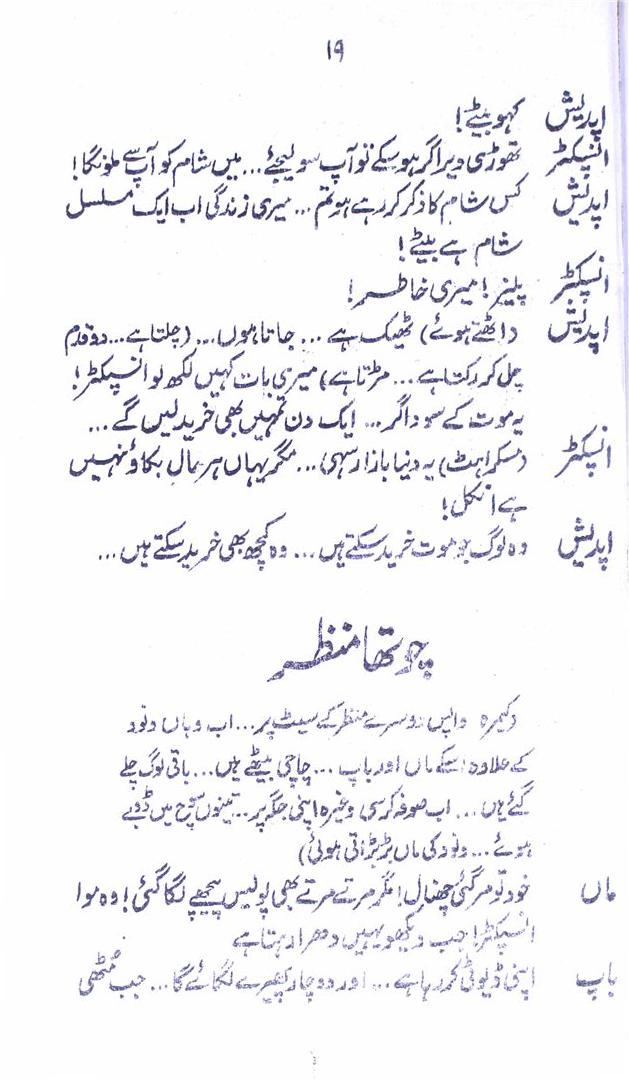 ۱۹
اپدیش کہو بیٹے!
انسپکٹر تھوڑی دیر اگر ہو سکے تو آپ سو لیجئے... میں شام کو آپ سے ملونگا!
اپدیش کس شام کا ذکر کر رہے ہو تم... میری زندگی اب ایک مسلسل
شام ہے بیٹے!
انسپکٹر پلیز! میری خاطر!
اپدیش (اٹھتے ہوئے) ٹھیک ہے... جاتا ہوں... (چلتا ہے... دو قدم
چل کر رکتا ہے... مڑتا ہے) میری بات کہیں لکھ لو انسپکٹر!
یہ موت کے سوداگر... ایک دن تمہیں بھی خرید لیں گے...
انسپکٹر (مسکراہٹ) یہ دنیا بازار سہی... مگر یہاں ہر مال بکاؤ نہیں
ہے انکل!
اپدیش وہ لوگ جو موت خرید سکتے ہیں... وہ کچھ بھی خرید سکتے ہیں...
چوتھا منظر
(کیمرہ واپس دوسرے منظر کے سیٹ پر... اب وہاں ونود
کے علاوہ اسکے ماں اور باپ... چاچی بیٹھے ہیں... باقی لوگ چلے
گئے ہیں... اب صوفہ کرسی وغیرہ اپنی جگہ پر... تینوں سوچ میں ڈوبے
ہوئے... ونود کی ماں بڑبڑاتی ہوئی)
ماں خود تو مر گئی چھنال! مگر مرتے مرتے بھی پولیس پیچھے لگا گئی! وہ موا
انسپکٹر! جب دیکھو یہیں دھرا رہتا ہے
باپ اپنی ڈیوٹی کر رہا ہے... اور دو چار پھیرے لگائے گا... جب مُٹھی